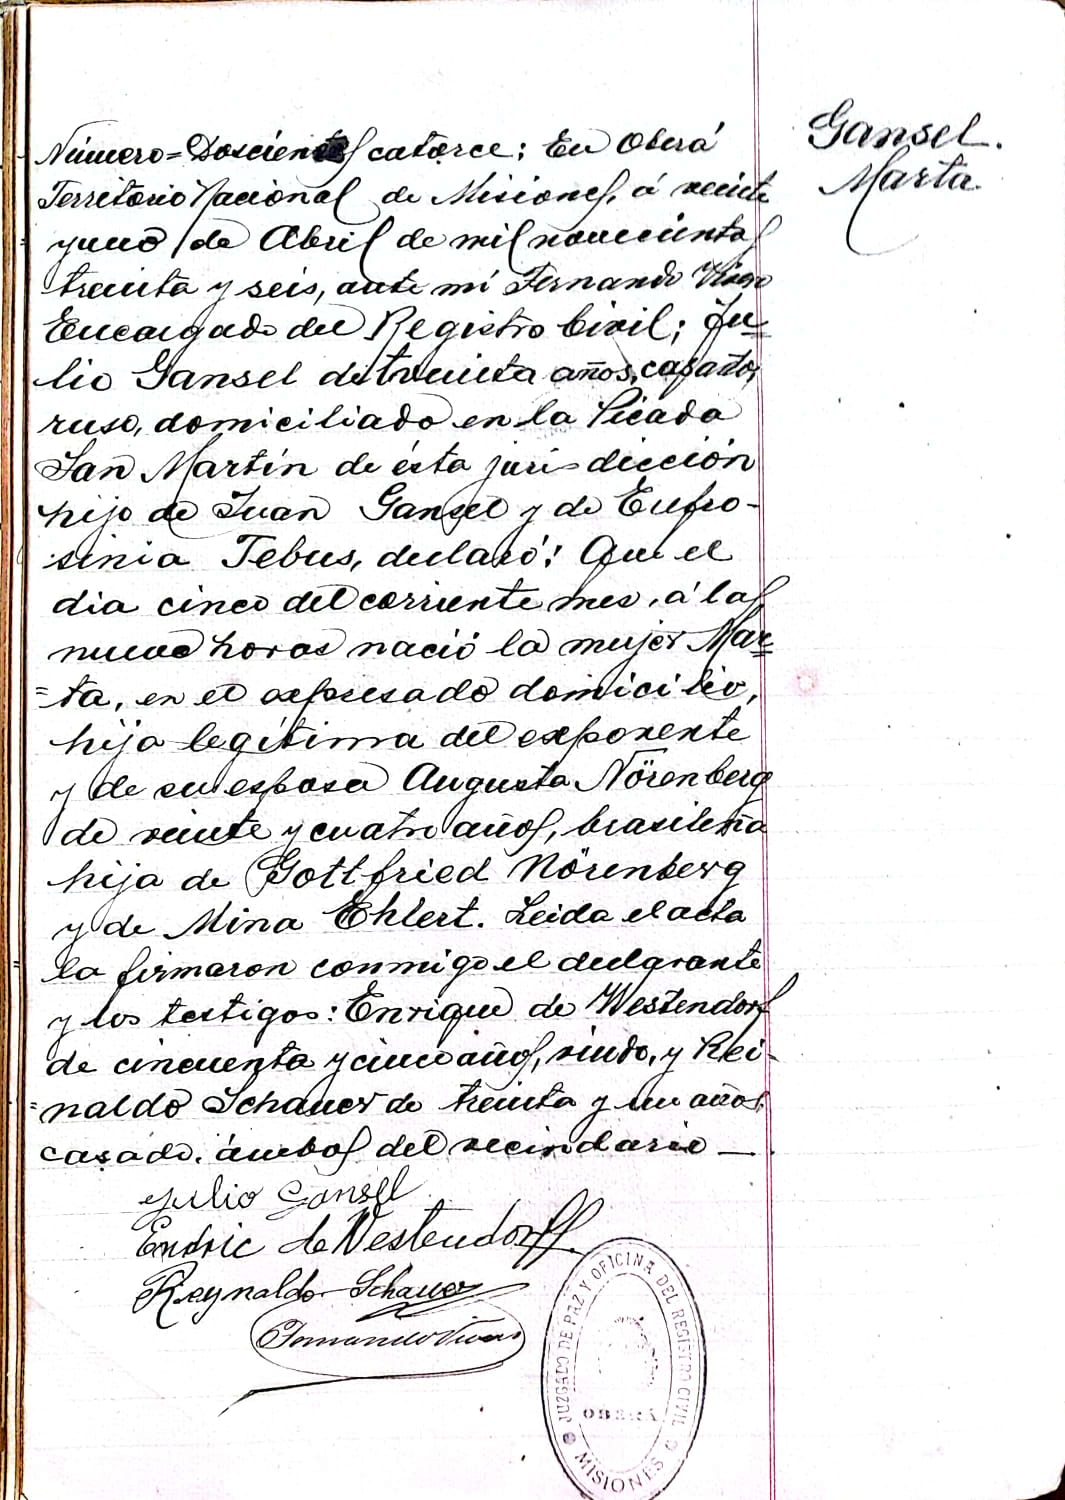 Gansel.
Marta.
Número= Doscientos catorce: En Oberá
Territorio Nacional de Misiones, á veinte
y uno de Abril de mil novecientos
treinta y seis, ante mí Fernando Vivar
Encargado del Registro Civil; Ju=
lio Gansel de treinta años, casado,
ruso, domiciliado en la Picada
San Martín de ésta juris=dicción
hijo de Juan Gansel y de Eufro-
sinia Tebus, declaró: Que el
dia cinco del corriente mes, á las
nueve horas nació la mujer Mar=
=ta, en el expresado domicilio,
hija legítima del exponente
y de su esposa Augusta Nörenberg
de veinte y cuatro años, brasileña
hija de Gottfried Nörenberg
y de Mina Ehlert. Leida el acta
la firmaron conmigo el declarante
y los testigos: Enrique de Westendorf
de cincuenta y cinco años, viudo, y Rei-
=naldo Schauer de treinta y un años
casado, ámbos del vecindario —
Julio Gansel
Endric de Westendorff.
Reynaldo Schauer
Fernando Vivar
JUZGADO DE PAZ Y OFICINA DEL REGISTRO CIVIL
OBERÁ
MISIONES